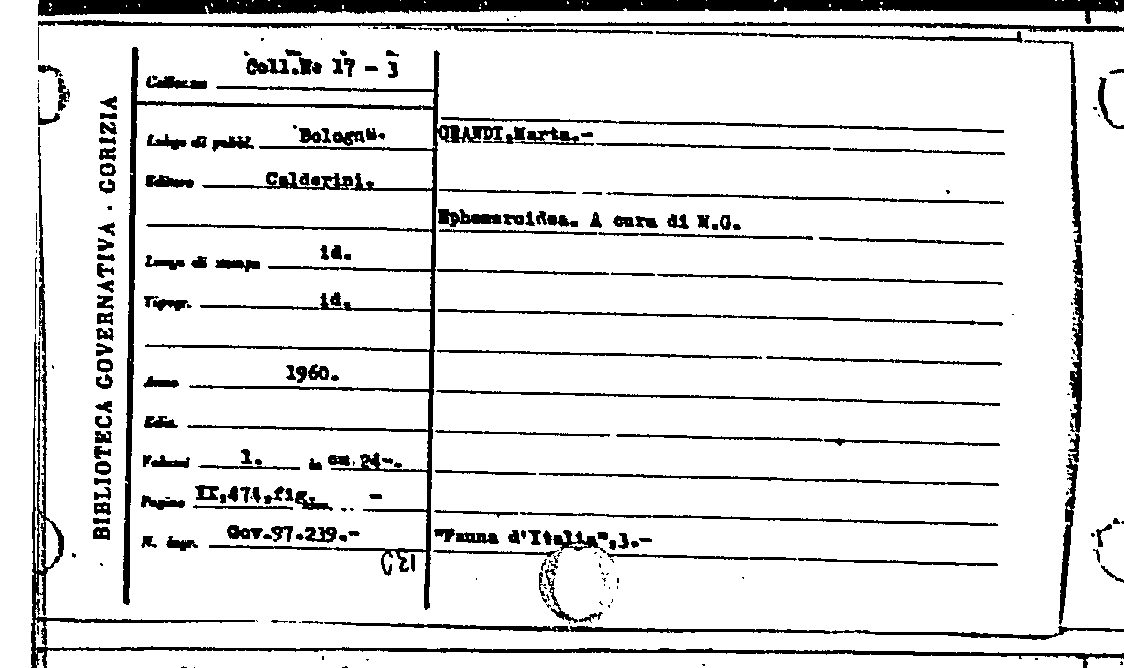 BIBLIOTECA GOVERNATIVA - GORIZIA
Collocaz. Coll.Ne 17 - 3
Luogo di pubbl. Bologna.
Editore Calderini.
Luogo di stampa id.
Tipogr. id.
Anno 1960.
Ediz.
Volumi 1. in cm. 24-.
Pagine IX,474,fig. -
N. ingr. Gov.97.239.-
GRANDI,Marta.-
Ephemeroidea. A cura di M.G.
"Fauna d'Italia",3.-